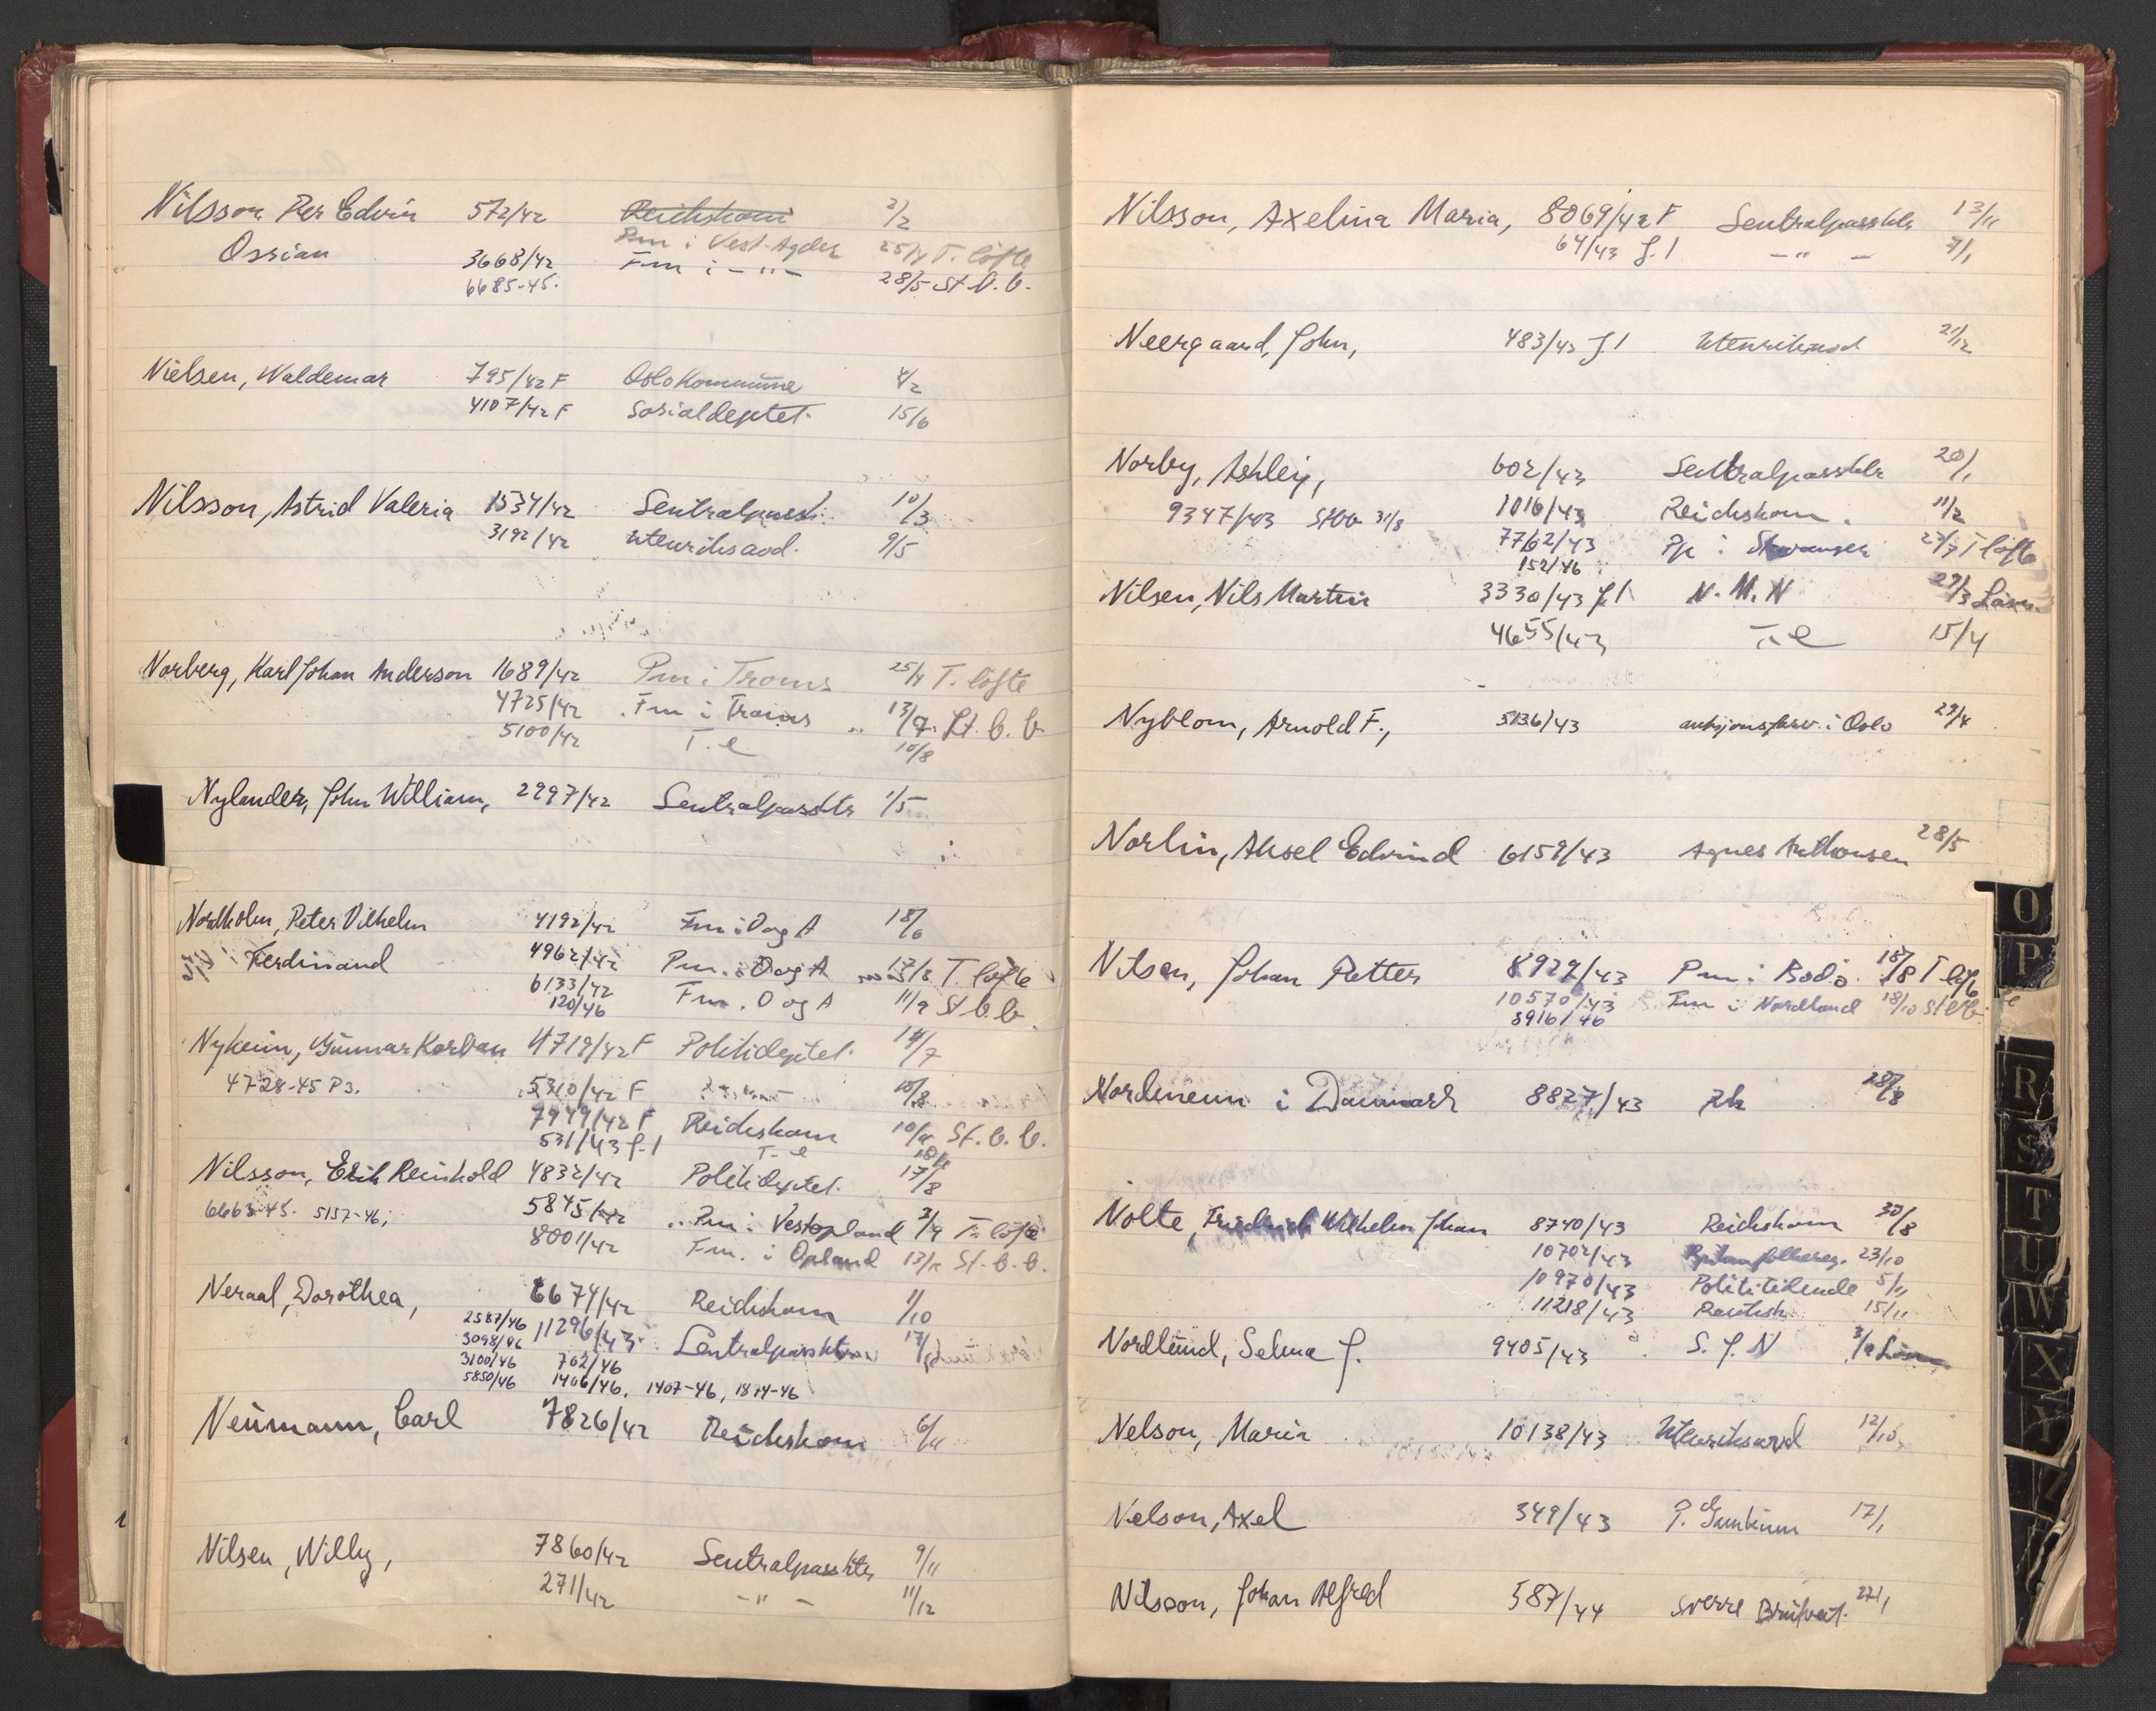 Nilsson Per Edvin 572/42 Reichskom 2/2
Ossian Pm i Vest-Agder 25/4 T. löfte
3668/42 Fm i - " - 28/5 St. b. b.
6685-45.
Nielsen, Waldemar 795/42 F Oslo Kommune 4/2
4107/42 F Sosialdeptet. 15/6
Nilsson, Astrid Valeria 1534/42 Sentralpassk. 10/3
3192/42 Utenriksavd. 9/5
Norberg, Karl Johan Anderson 1689/42 Pm i Troms 25/4 T. löfte
4725/42 Fm i Troms 13/7 St. b. b.
5100/42 T. e 10/8
Nylander, John William, 2997/42 Sentralpassktr 1/5
Nordholm, Peter Vilhelm 4192/42 Fm i O og A 18/6
Ferdinand 4962/42 Pm. i O og A 17/8 T. löfte
6133/42 Fm. O og A 11/9 St. b. b.
120/46
Nykeim, Gunnar Korban 4719/42 F Politideptet. 14/7
4728-45 P3. 5310/42 F 10/8
7949/42 F Reichskom 10/11 St. b. b.
531/43 J.l T. e
Nilsson, Erik Reinhold 4832/42 Politideptet. 17/8
6663-45. 5157-46; 5845/42 Pm i Vestopland 3/9 T. löfte
8001/42 Fm. i Opland 13/11 St. b. b.
Neraal, Dorothea, 6674/42 Reichskom 1/10
2587/46 11296/43 Sentralpassktr 17/11
3098/46
3100/46 702/46
5850/46 1406/46, 1407-46, 1874-46
Neumann, Carl 7826/42 Reichskom 6/11
Nilsen, Willy, 7860/42 Sentralpassktr 9/11
271/42 - " - 11/12
Nilsson, Axelina Maria, 8069/42 F Sentralpassktr 13/11
64/43 J.l - " - 4/1
Neergaard, John, 483/43 J.l Utenriksavd 21/12
Norby, Ashley, 602/43 Sentralpassktr 20/1
9347/43 Stbb 31/8 1016/43 Reichskom. 11/2
7762/43 Pp i Stavanger 27/7 T löfte
152/46
Nilsen, Nils Martin 3330/43 J.l N. M. N 29/3
4655/43 T. e 15/4
Nyblom, Arnold F., 5136/43 auksjonsforv. i Oslo 29/4
Norlin, Aksel Edvind 6159/43 Agnes Anthonsen 28/5
Nilsen, Johan Petter 8929/43 Pm i Bodö. 18/8 T löfte
10570/43 Fm i Nordland 18/10 Stbb
8916/46
Nordmenn i Danmark 8827/43 28/8
Nolte, Friedrich Wilhelm Johan 8740/43 Reichskom 30/8
10702/43 23/10
10970/43 Polititidende 5/11
11218/43 15/11
Nordlund, Selma J. 9405/43 S. J. N
Nelson, Maria 10138/43 Utenriksavd 12/10
Nelson, Axel 349/43 17/1
Nilsson, Johan Alfred 587/44 Sverre 27/1
O
P
R
S
T
U
W
X
Y